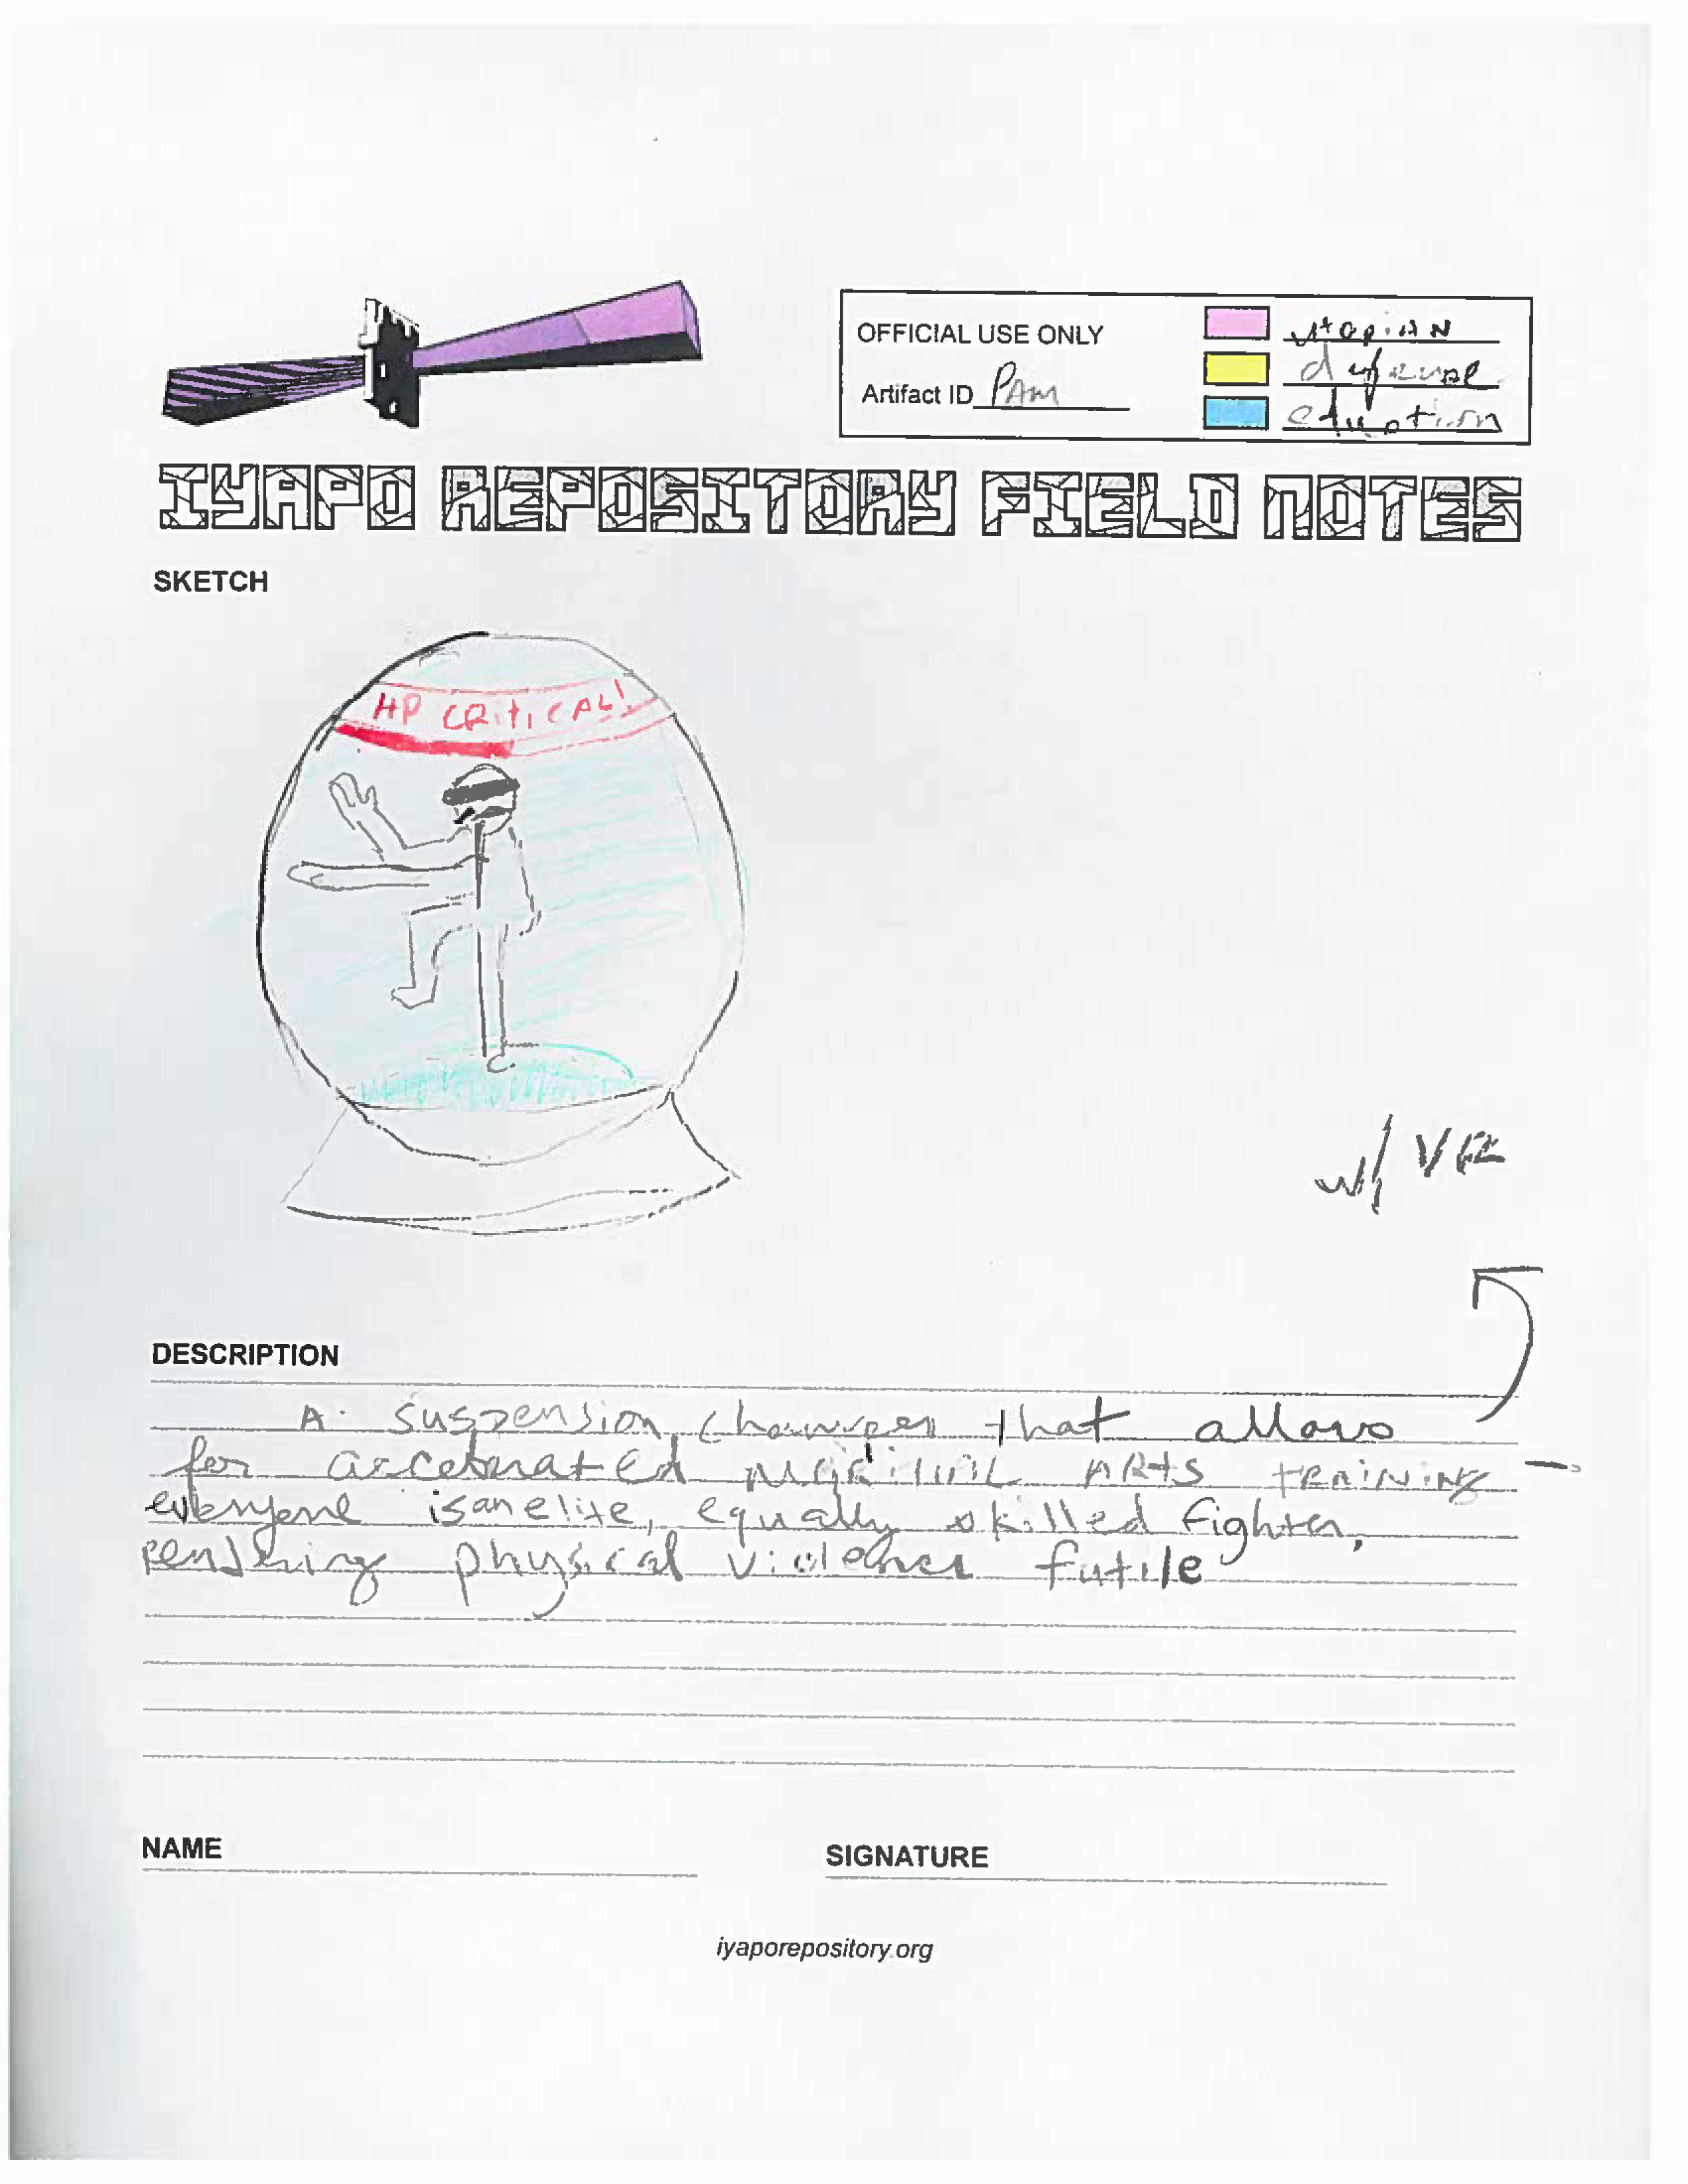 OFFICIAL USE ONLY
Artifact ID PAM
utopian
education
IYAPO REPOSITORY FIELD NOTES
SKETCH
HP CRITICAL!
w/ VR
DESCRIPTION
A suspension chamber that allows
for accelerated martial ARts tRAiNiNg
everyone is an elite, equally skilled fighter,
Rendering physical violence futile
NAME
SIGNATURE
iyaporepository.org